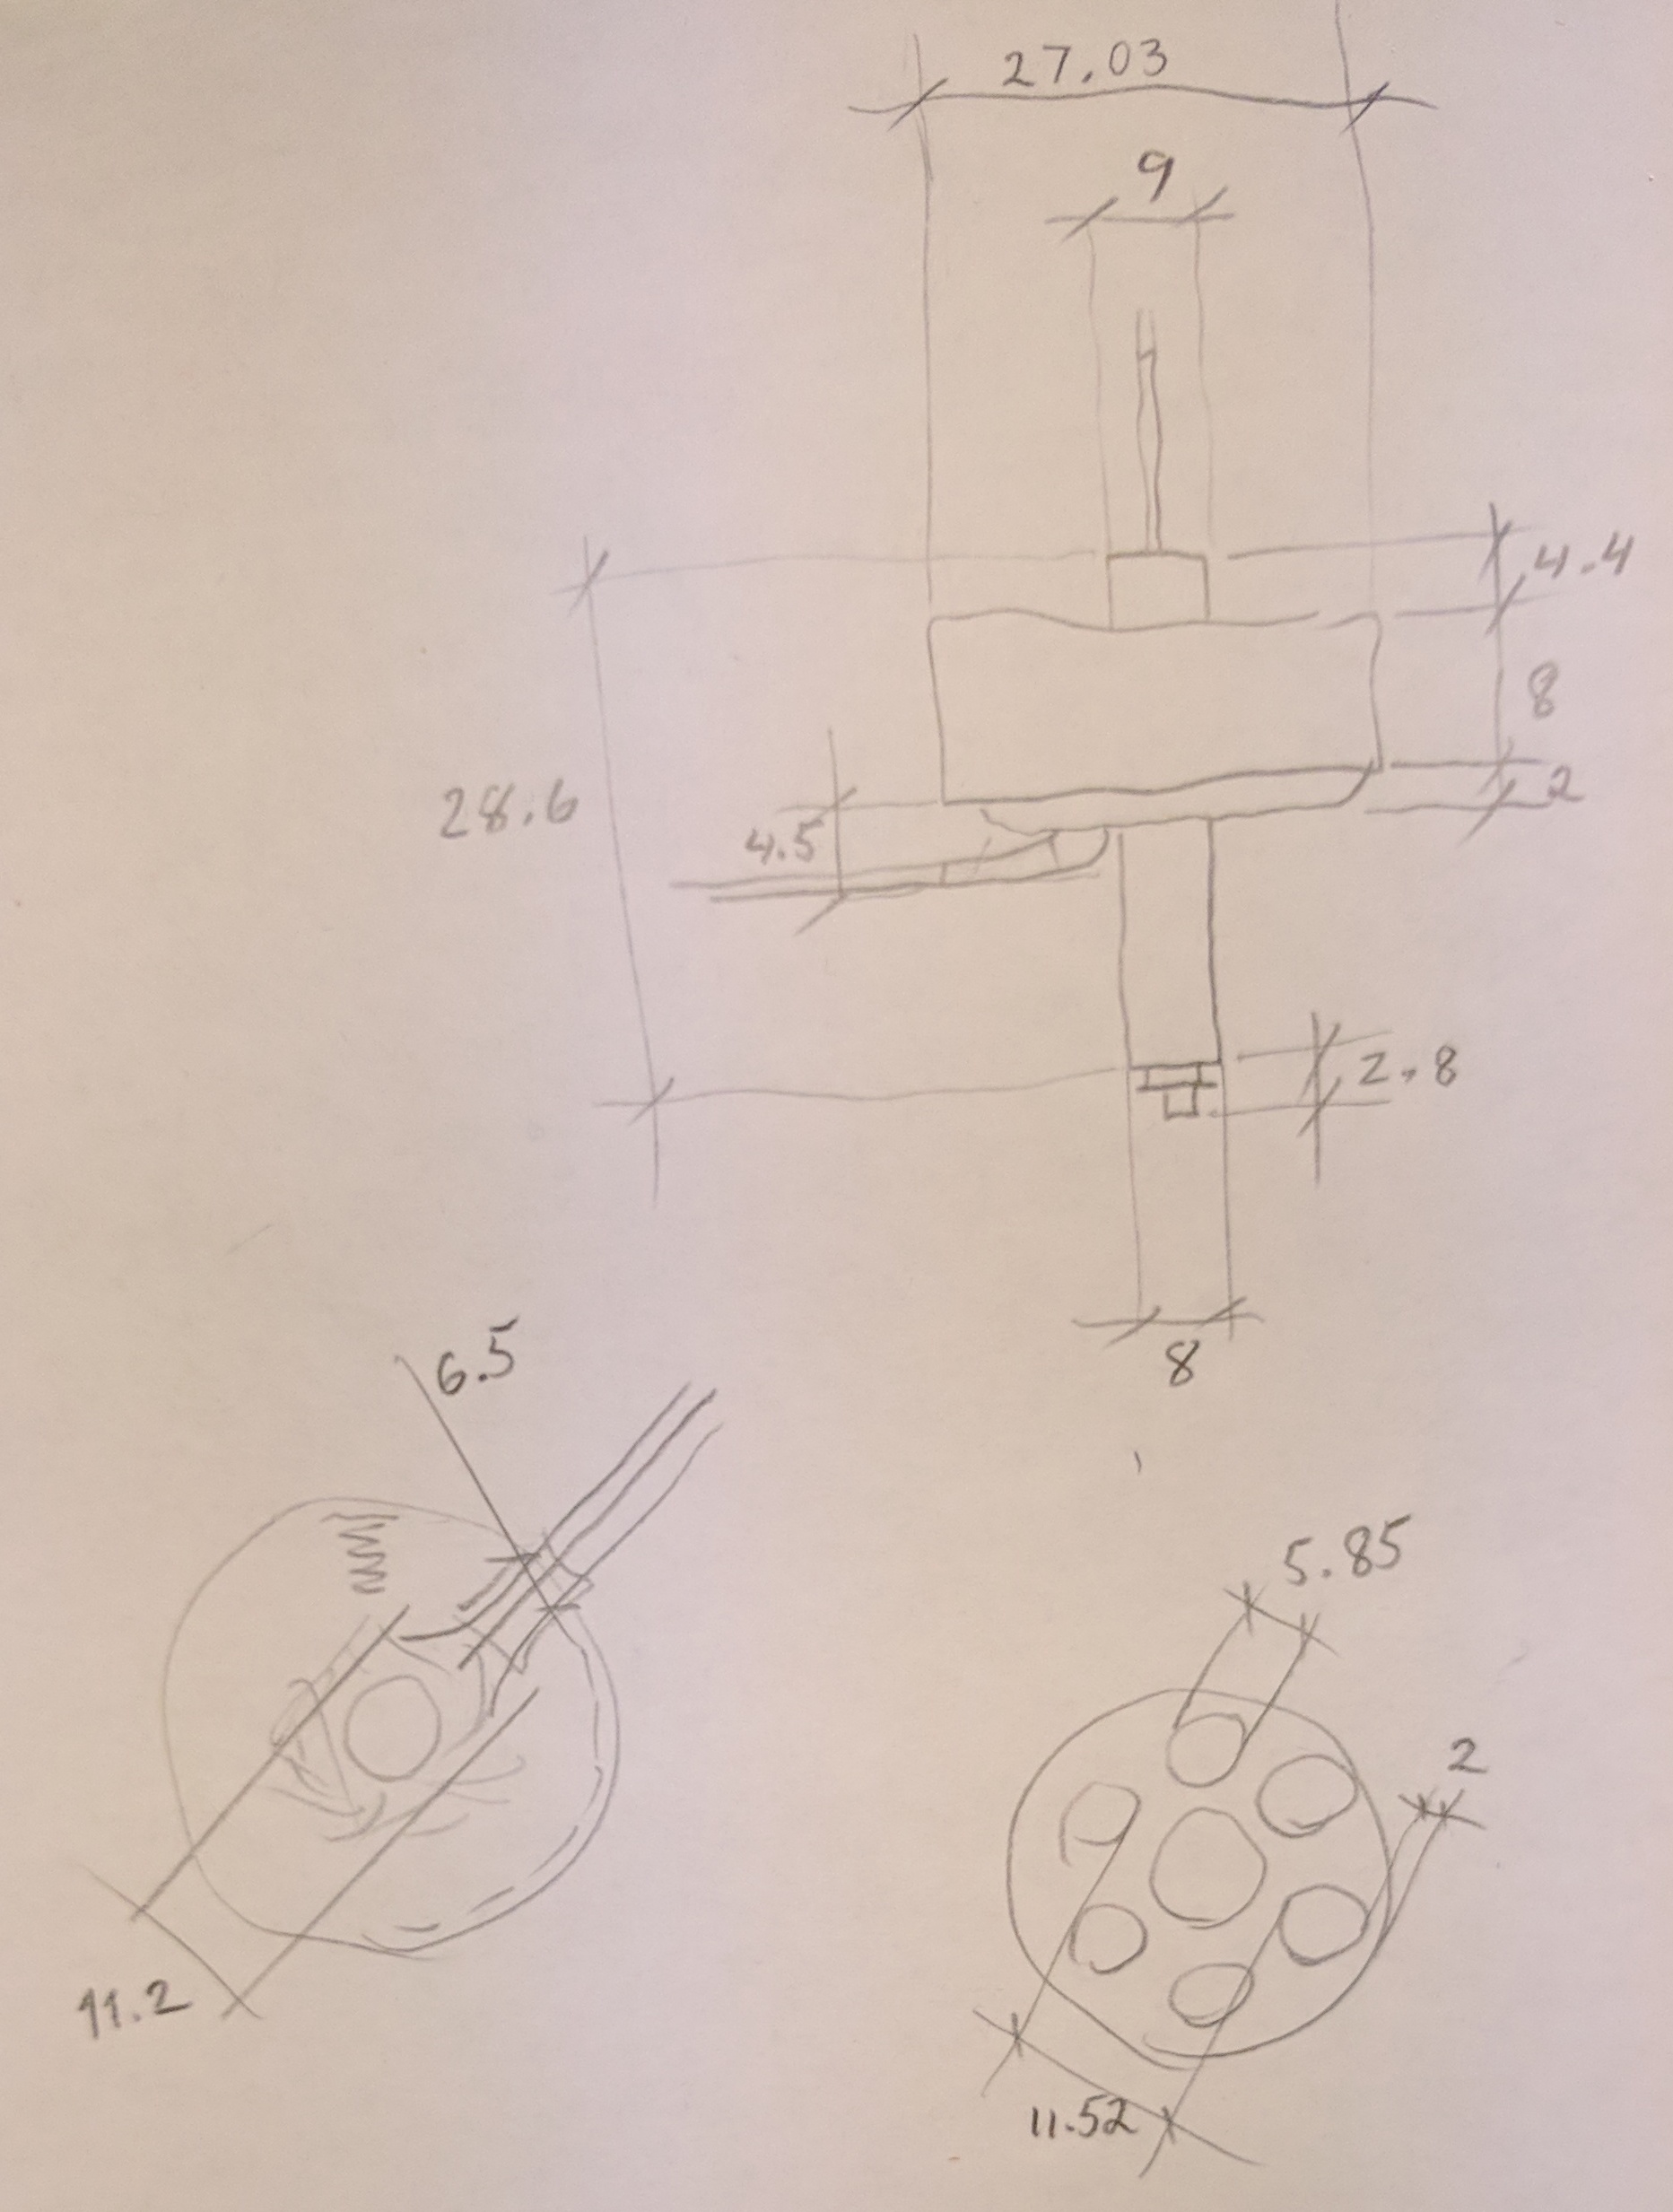 27.03
9
4.4
8
2
28.6
4.5
2.8
8
6.5
5.85
2
11.2
11.52